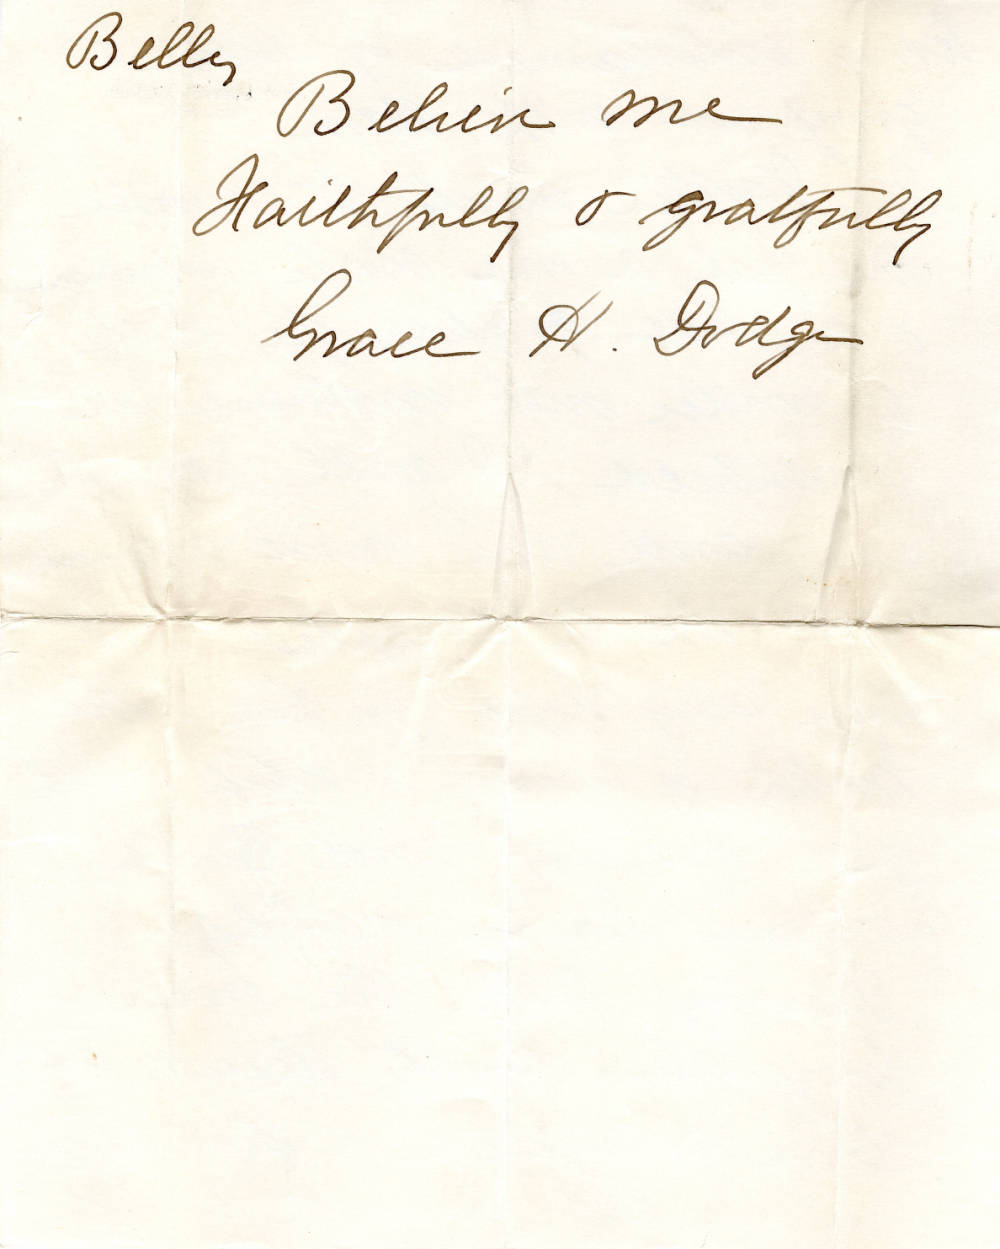 Belle,
Believe me
Faithfully & gratfully
Grace H. Dodge